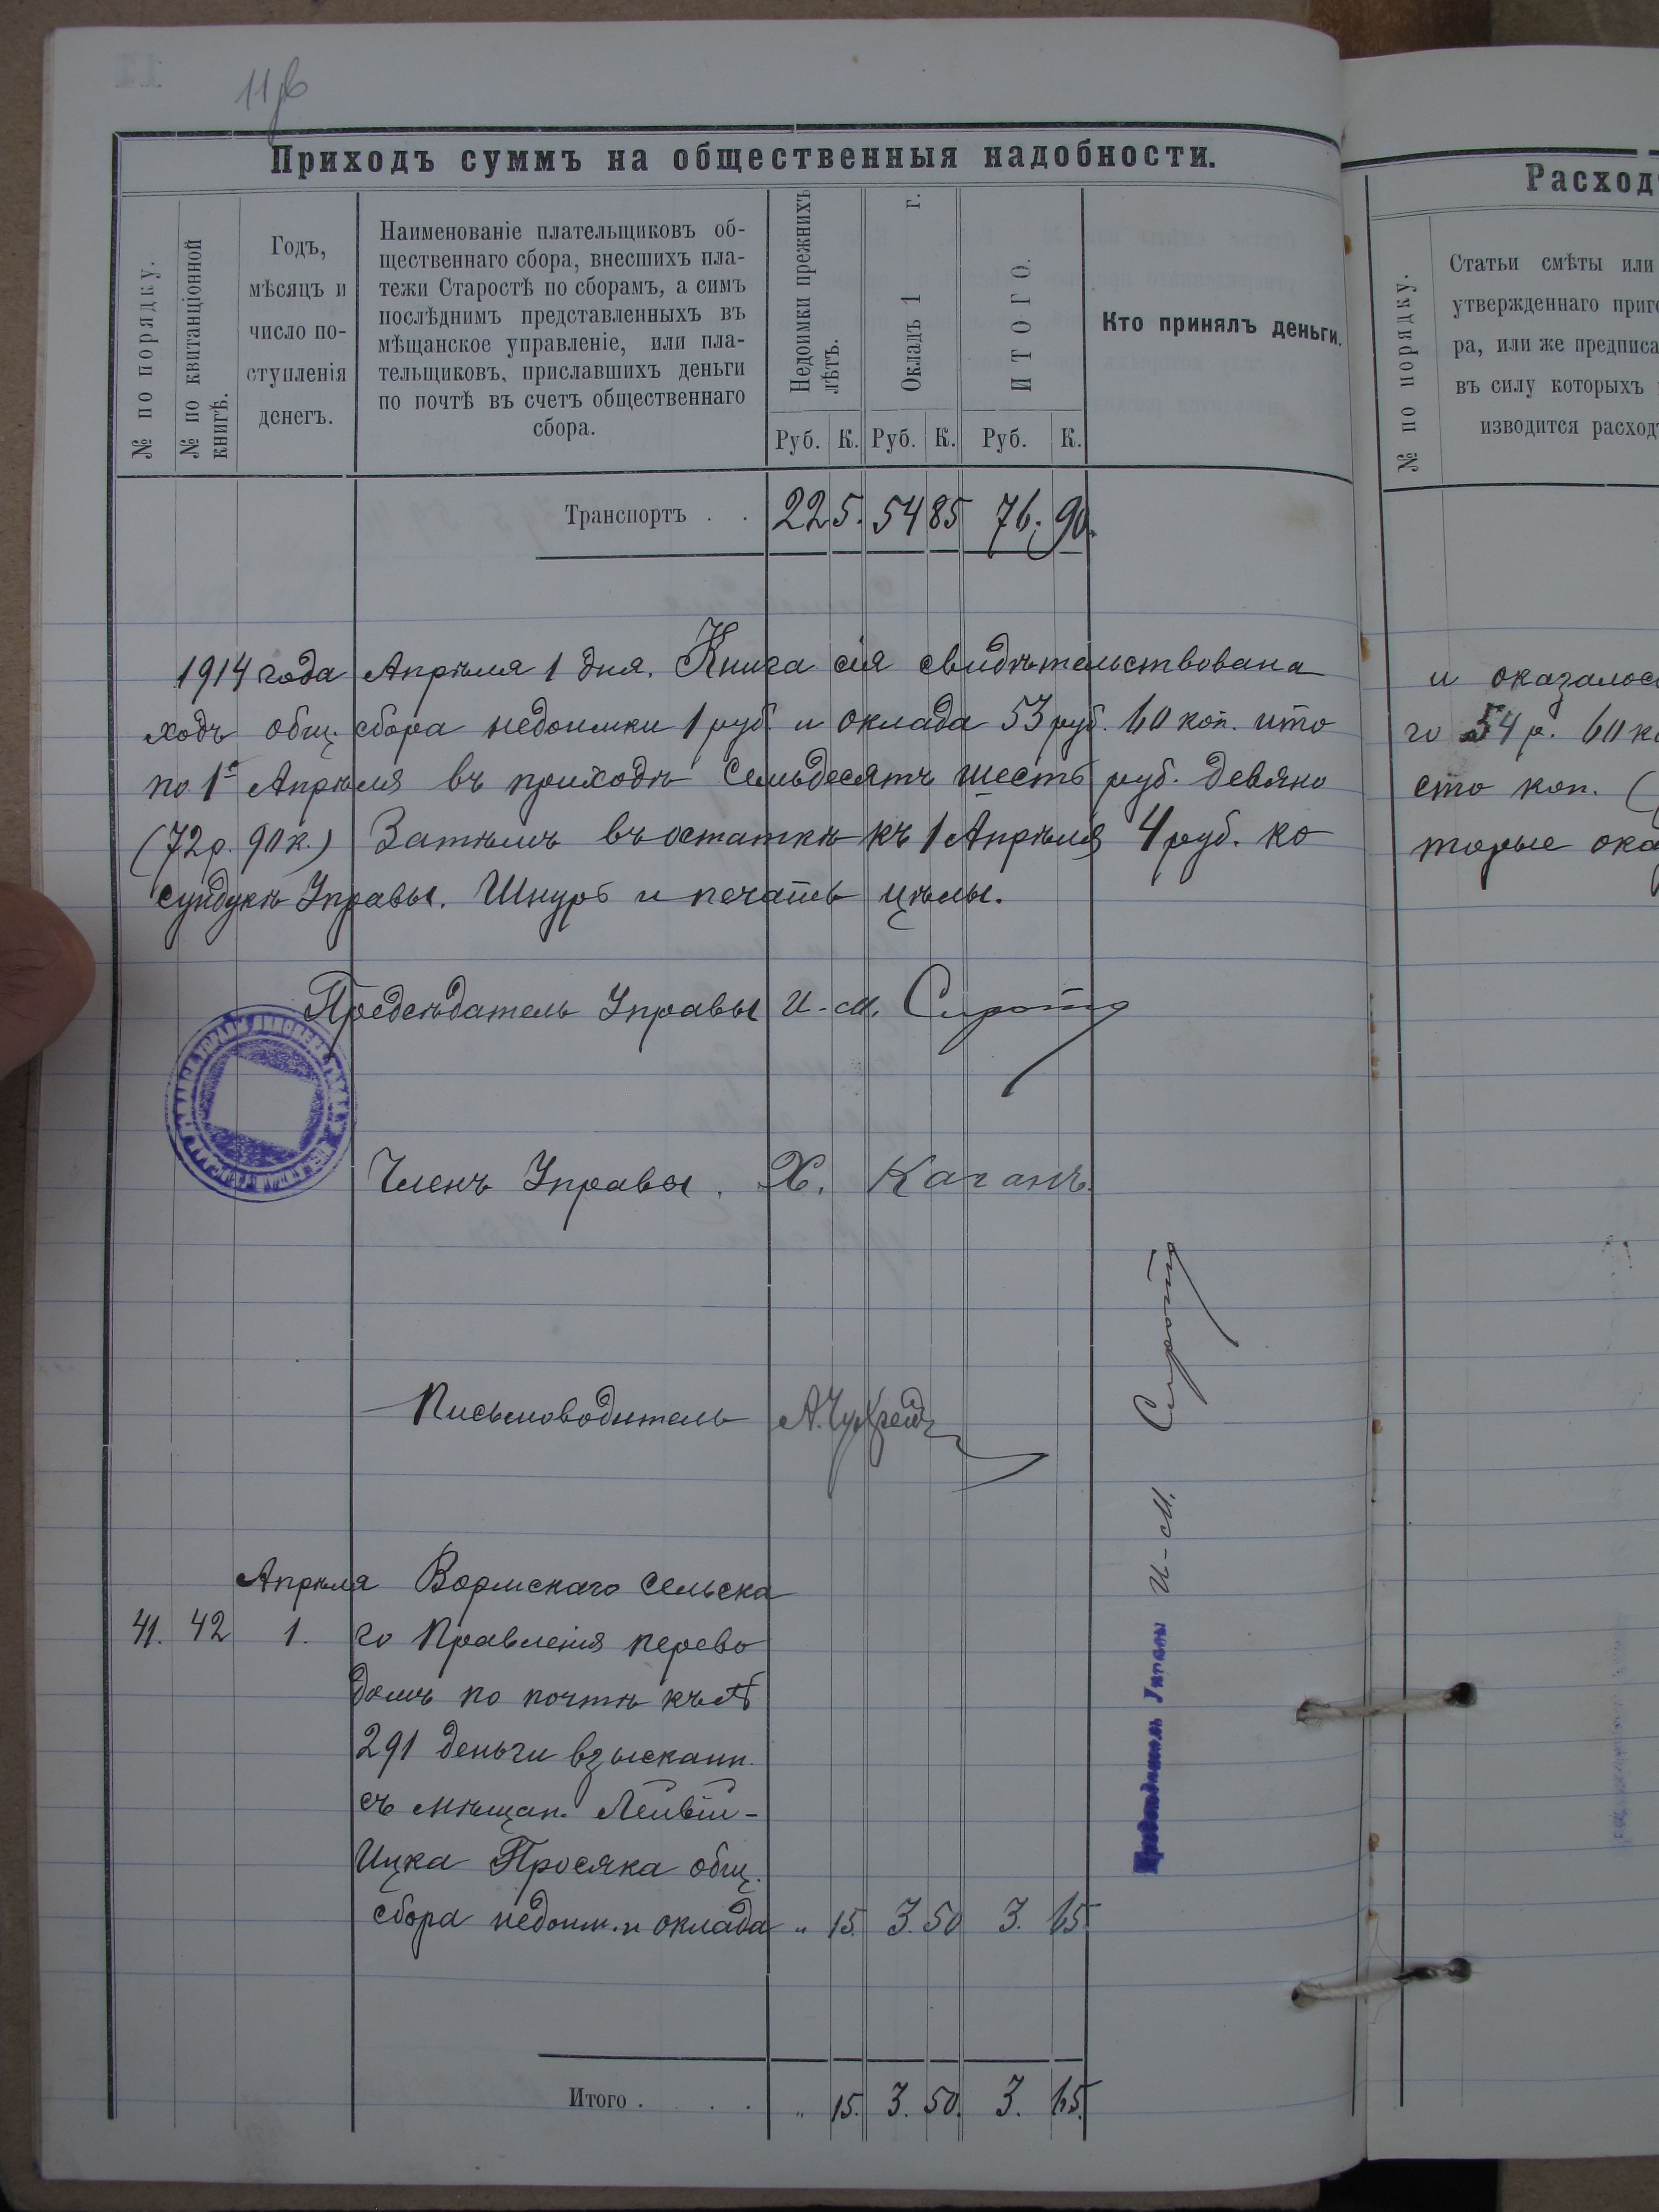 11об
Приходъ суммъ на общественныя надобности.
№ по порядку.
№ по квитанціонной книгѣ.
Годъ,
мѣсяцъ и
число по-
ступленія
денегъ.
Наименованіе плательщиковъ об-
щественнаго сбора, внесшихъ пла-
тежи Старостѣ по сборамъ, а симъ
послѣднимъ представленныхъ въ
мѣщанское управленіе, или пла-
тельщиковъ, приславшихъ деньги
по почтѣ въ счетъ общественнаго
сбора.
Недоимки прежнихъ лѣтъ.
Окладъ 1 г.
ИТОГО.
Руб. К. Руб. К. Руб. К.
Кто принялъ деньги.
Транспортъ . . 22 5. 54 85 76. 90.
1914 года Апрѣля 1 дня. Книга сія свидѣтельствована
ходъ общ. сбора недоимки 1 руб. и оклада 53 руб. 60 коп. ито
по 1е Апрѣля въ приходѣ семьдесятъ шесть руб. девяно
(72р. 90к.) Затѣмъ въ остаткѣ къ 1 Апрѣля 4 руб. ко
сундукѣ Управы. Шнуръ и печать цѣлы.
Предсѣдатель Управы И-М. Сирота
Членъ Управы. Х. Каганъ.
Письмоводитель
Предсѣдатель Управы И-М. Сирота
Апрѣля Вормскаго сельска
41. 42 1. го Правленія перево
домъ по почтѣ къ №
291 деньги взысканн.
съ мѣщан. Лейви-
Ицка Просяка общ.
сбора недоим. и оклада „ 15. 3. 50 3. 65.
Итого . . . . „ 15. 3. 50. 3. 65.
Расходъ
№ по порядку.
Статьи смѣты или
утвержденнаго приго
ра, или же предписа
въ силу которыхъ
изводится расход
и оказалос
го 54 р. 60 ко
сто коп. (
торые ока